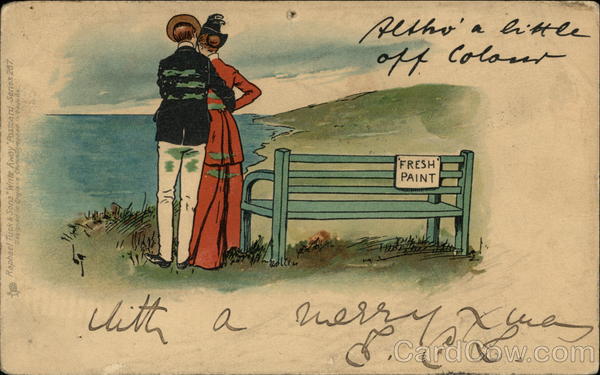 Altho' a little
off Colour
"FRESH"
PAINT
With a merry xmas
Raphael Tuck & Sons "Write Away" Postcard Series 267
CardCow.com